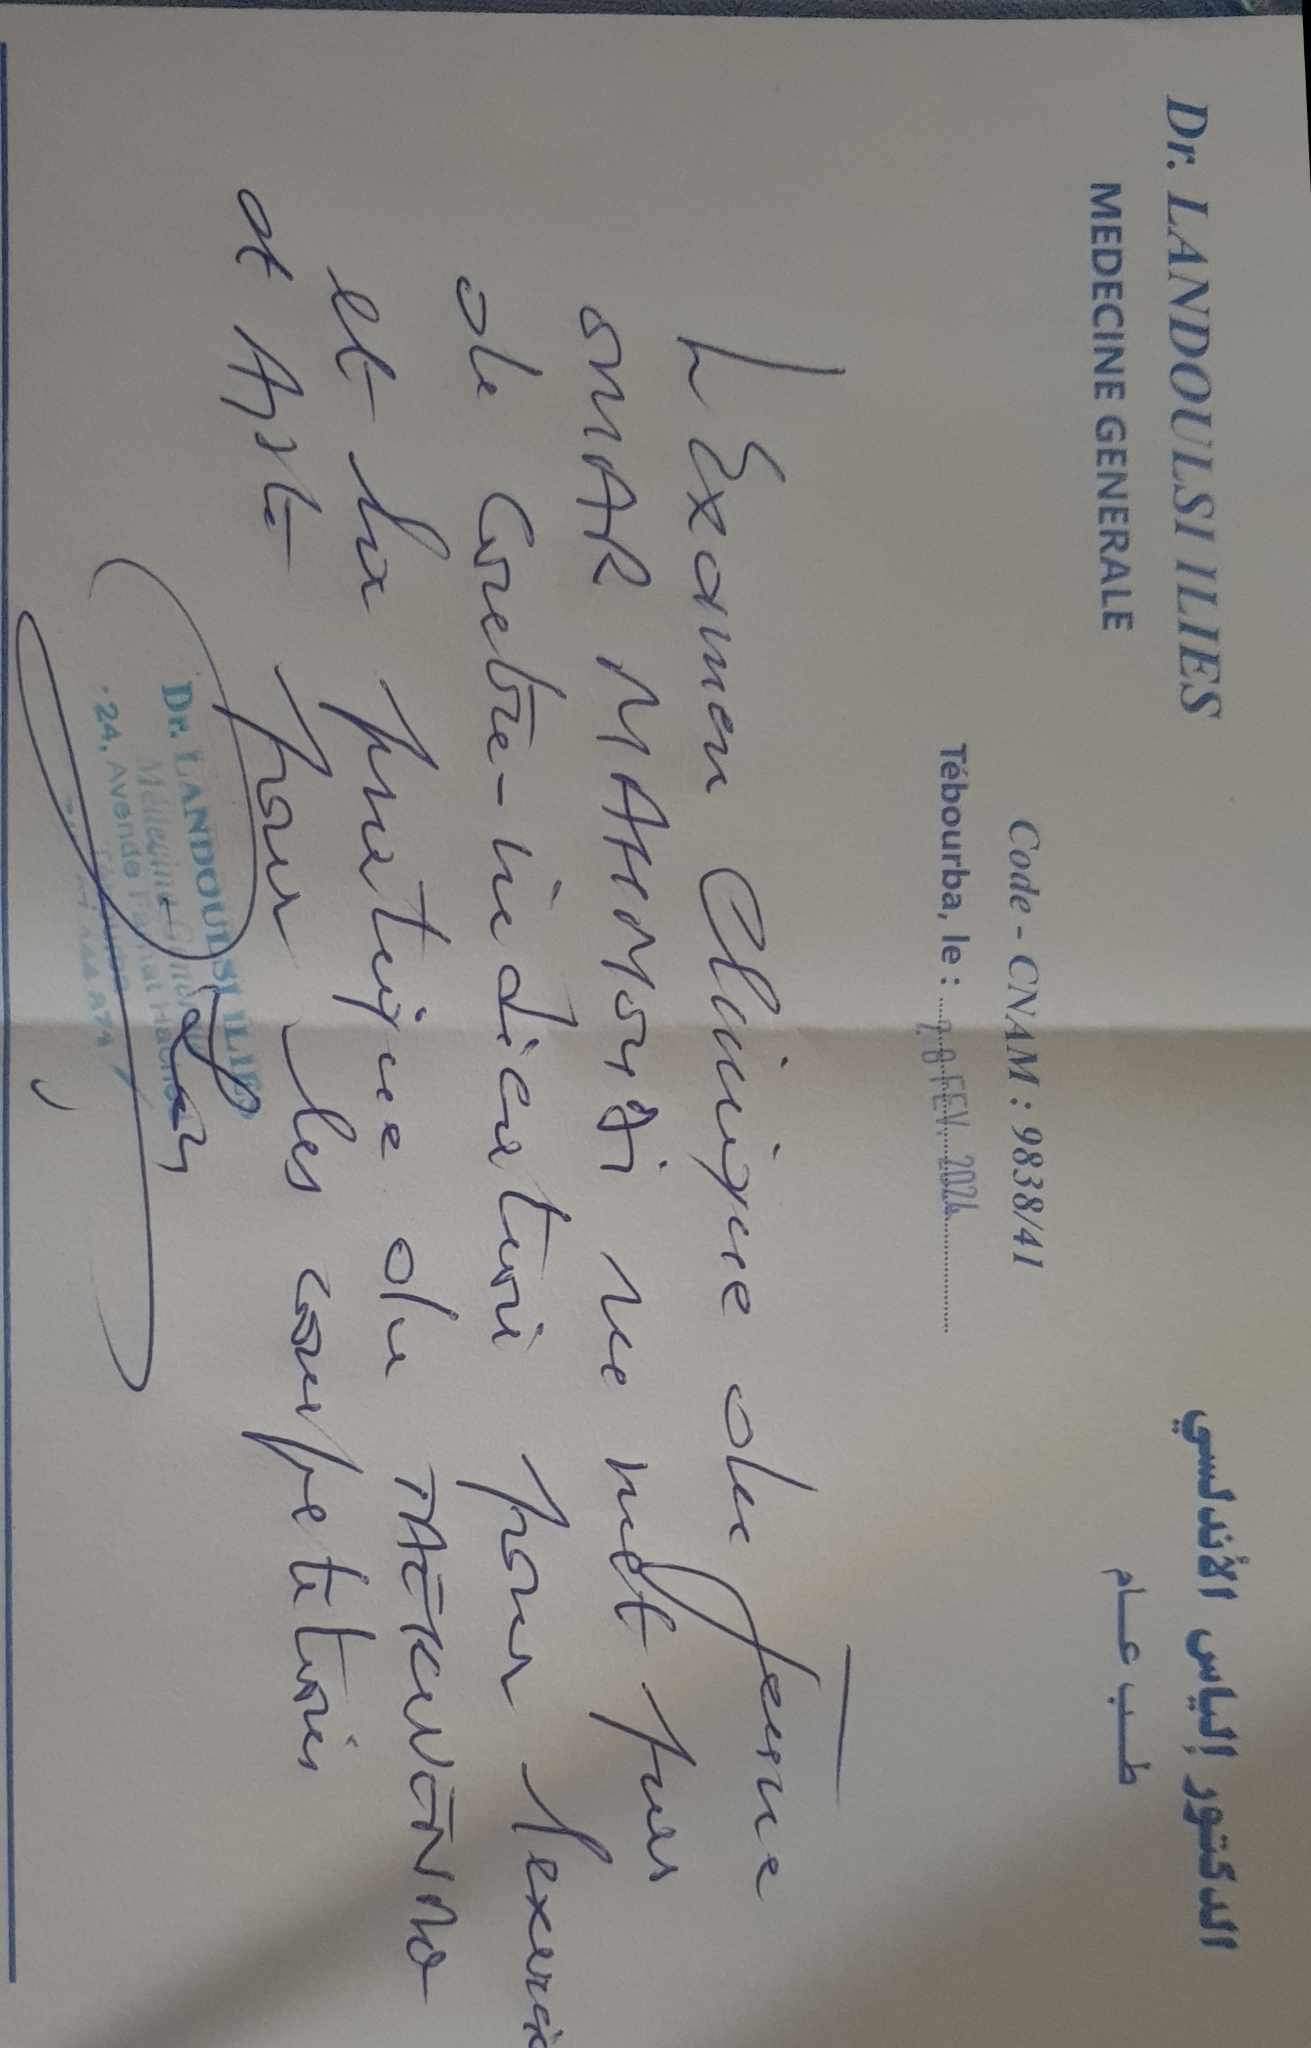 Dr. LANDOULSI ILIES
MEDECINE GENERALE
الدكتور إلياس الأندلسي
طب عام
Code - CNAM : 9838/41
Tébourba, le : 28 FEV. 2024
L'Examen Clinique du Jeune
OMAR MAHMOUDI ne met pas
de Contre-indication pour l'exercice
et la pratique du TAEKWONDO
et Apte pour les competitions
Dr. LANDOULSI ILIES
24, Avenue Farhat Hached